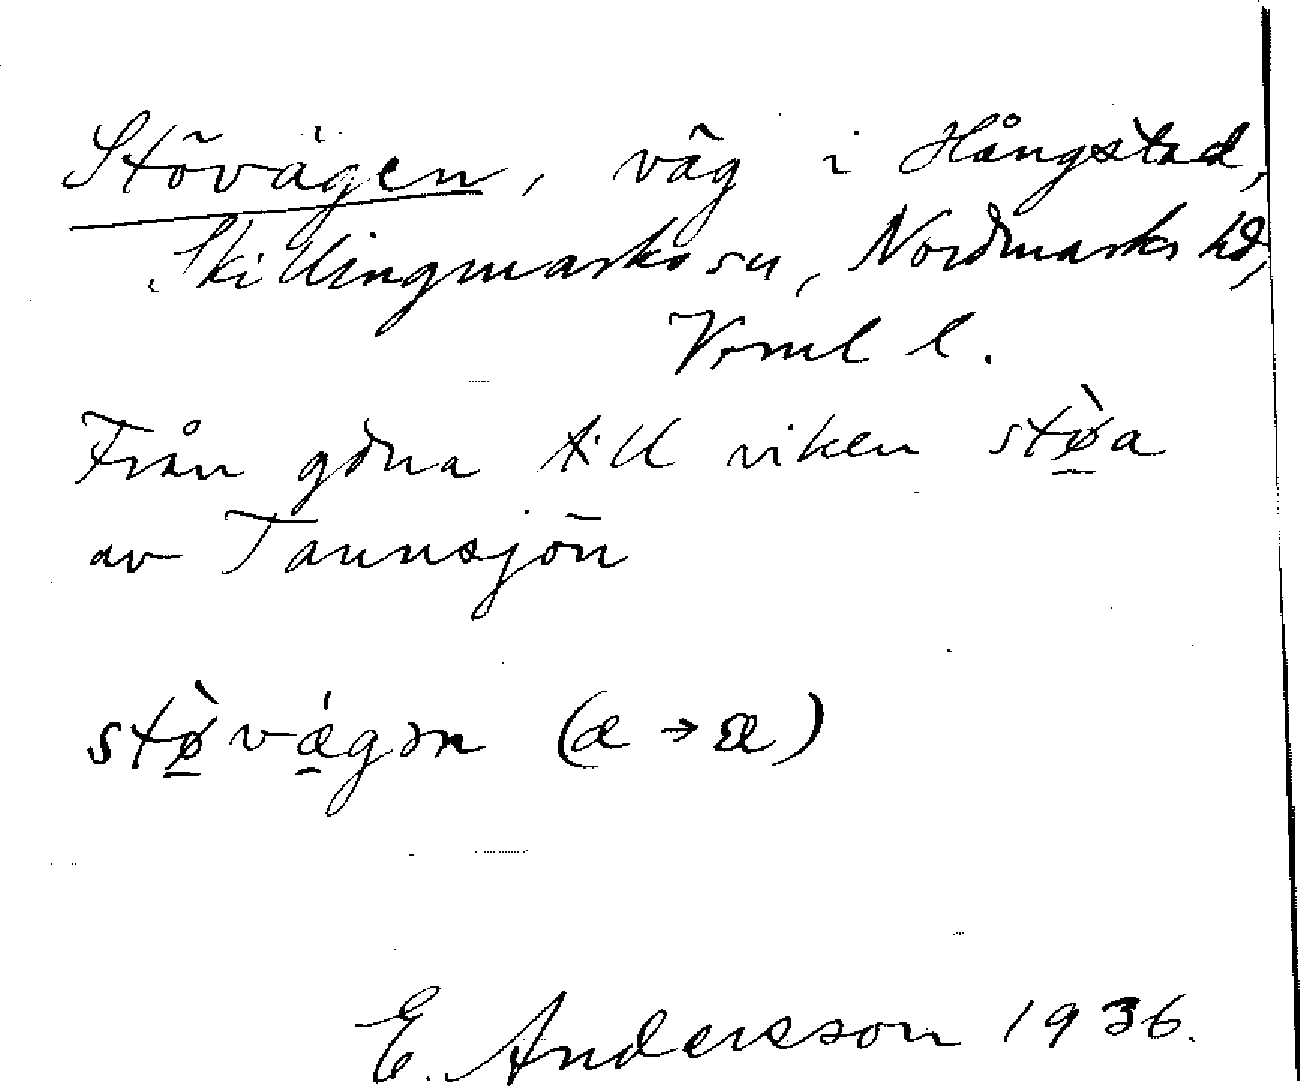 Stövägen, väg i Hångstad,
Skillingmarks sn, Nordmarks hd,
Vrml l.
Från gdna till viken stø̀a
av Tannsjön
stø̀vágən (a → æ)
E. Andersson 1936.